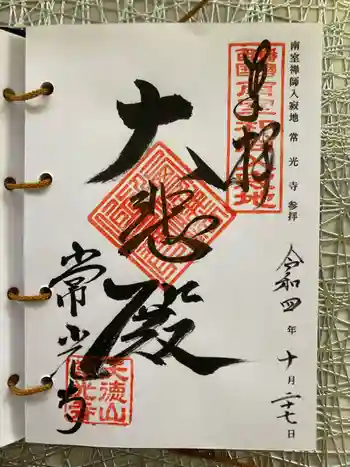 南室禅師入寂地 常光寺 参拝
令和四年十月二十七日
奉拝
大悲殿
常光寺
天徳山
常光寺